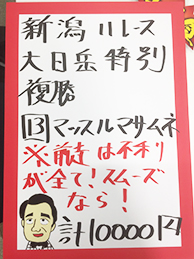 新潟11レース
大日岳特別
複勝
13マッスルマサムネ
※前走は不利
が全て！スムーズ
なら！
計10000円